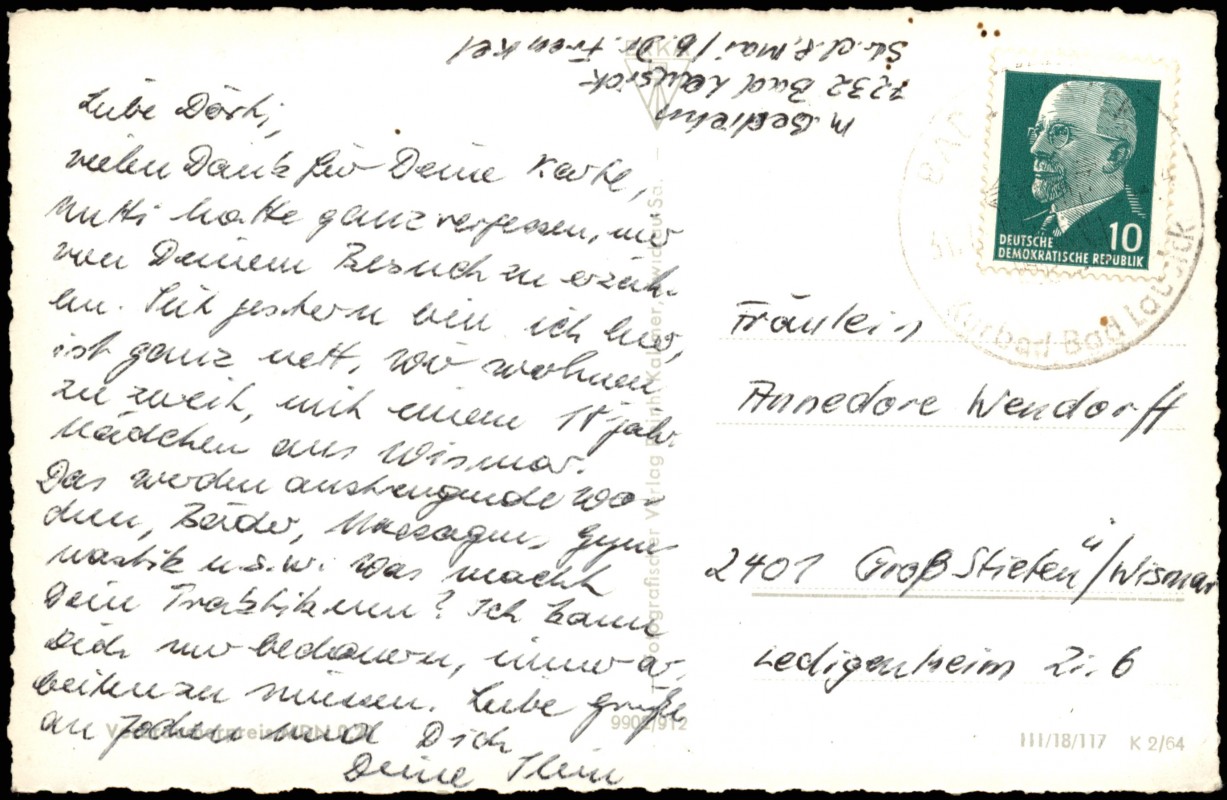 M. Bedlehn
7232 Bad Lausick
Str. d. 8. Mai / b. Dr. Frenkel
Liebe Dörti,
vielen Dank für Deine Karte,
Mutti hatte ganz vergessen, mir
von Deinem Besuch zu erzäh-
len. Seit gestern bin ich hier,
ist ganz nett, wir wohnen
zu zweit, mit einem 18 jähr.
Mädchen aus Wismar.
Das werden anstrengende Wo-
chen, Bäder, Massagen, Gym-
nastik u.s.w. Was macht
Dein Praktikum? Ich kann
Dich nur bedauern, immer ar-
beiten zu müssen. Liebe Grüße
an Jochen und Dich
Deine
DEUTSCHE
DEMOKRATISCHE REPUBLIK
10
Kurbad Bad Lausick
Fräulein
Annedore Wendorff
2401 Groß Stieten ü/Wismar
Ledigenheim Zi. 6
Fotografischer Verlag
9902/912
III/18/117 K 2/64